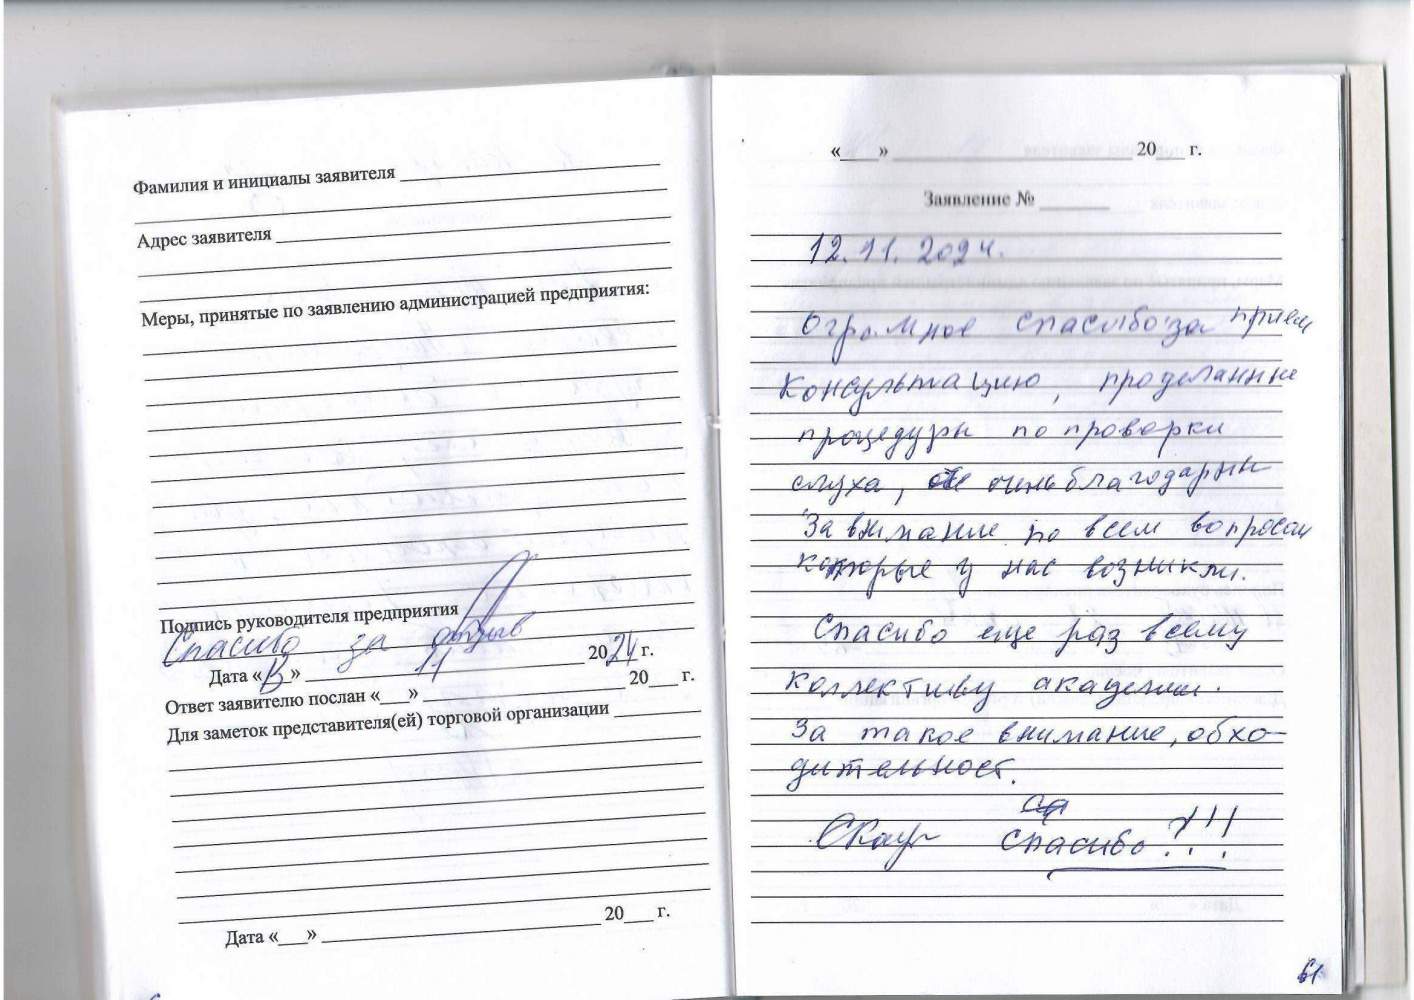 Фамилия и инициалы заявителя
Адрес заявителя
Меры, принятые по заявлению администрацией предприятия:
Подпись руководителя предприятия
Спасибо за отзыв
Дата «13» 11 2024 г.
Ответ заявителю послан «___» 20___ г.
Для заметок представителя(ей) торговой организации
Дата «___» 20___ г.
«___» 20___ г.
Заявление №
12.11.2024.
Огромное спасибо за прием
Консультацию, проделанные
процедуры по проверки
слуха, очень благодарны
За внимание по всем вопросам
которые у нас возникли.
Спасибо еще раз всему
коллективу академии.
За такое внимание, обхо-
дительност.
Спасибо!!!
61